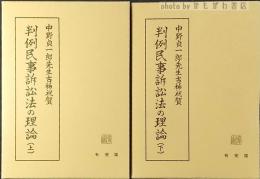 photo by まそむ書店
中野貞一郎先生古稀祝賀
判例民事訴訟法の理論(上)
有斐閣
中野貞一郎先生古稀祝賀
判例民事訴訟法の理論(下)
有斐閣